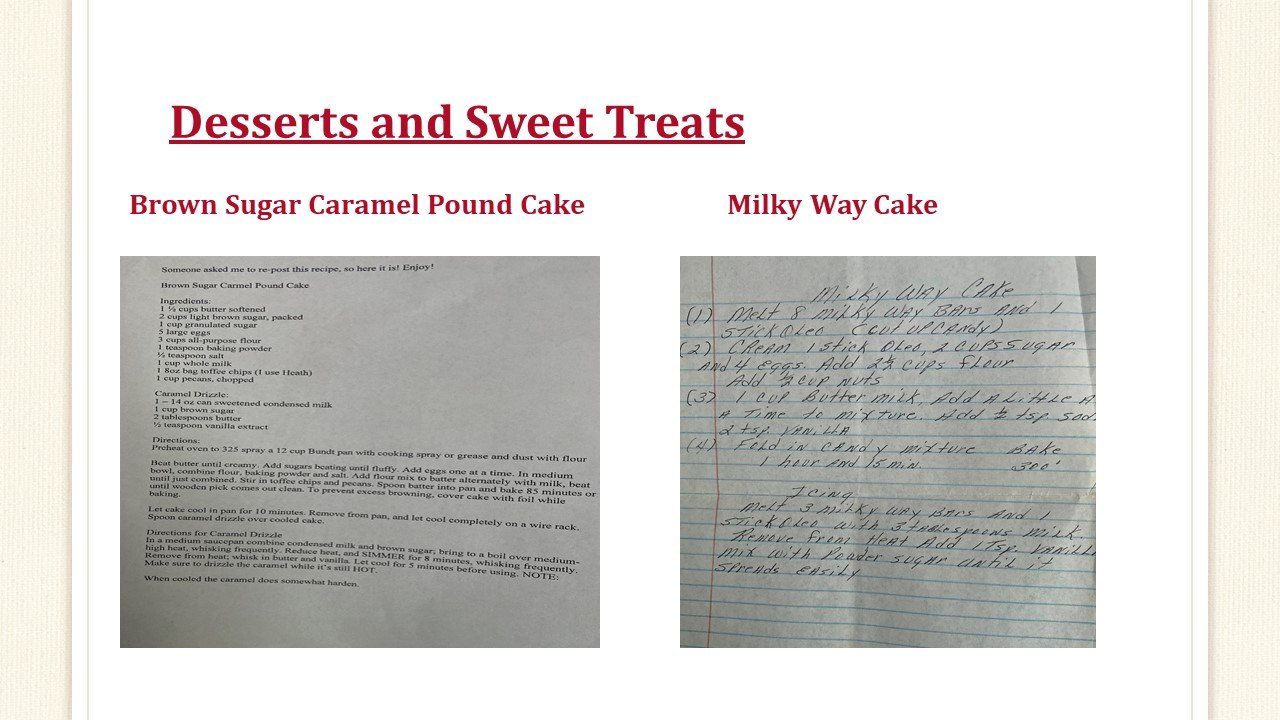 Desserts and Sweet Treats
Brown Sugar Caramel Pound Cake
Someone asked me to re-post this recipe, so here it is! Enjoy!
Brown Sugar Carmel Pound Cake
Ingredients:
1 ½ cups butter softened
2 cups light brown sugar, packed
1 cup granulated sugar
5 large eggs
3 cups all-purpose flour
1 teaspoon baking powder
½ teaspoon salt
1 cup whole milk
1 8oz bag toffee chips (I use Heath)
1 cup pecans, chopped
Caramel Drizzle:
1 – 14 oz can sweetened condensed milk
1 cup brown sugar
2 tablespoons butter
½ teaspoon vanilla extract
Directions:
Preheat oven to 325 spray a 12 cup Bundt pan with cooking spray or grease and dust with flour
Beat butter until creamy. Add sugars beating until fluffy. Add eggs one at a time. In medium
bowl, combine flour, baking powder and salt. Add flour mix to batter alternately with milk, beat
until just combined. Stir in toffee chips and pecans. Spoon batter into pan and bake 85 minutes or
until wooden pick comes out clean. To prevent excess browning, cover cake with foil while
baking.
Let cake cool in pan for 10 minutes. Remove from pan, and let cool completely on a wire rack.
Spoon caramel drizzle over cooled cake.
Directions for Caramel Drizzle
In a medium saucepan combine condensed milk and brown sugar; bring to a boil over medium-
high heat, whisking frequently. Reduce heat, and SIMMER for 8 minutes, whisking frequently.
Remove from heat; whisk in butter and vanilla. Let cool for 5 minutes before using. NOTE:
Make sure to drizzle the caramel while it's still HOT.
When cooled the caramel does somewhat harden.
Milky Way Cake
Milky Way Cake
(1) Melt 8 milky way Bars and 1
Stick Oleo (cut up candy)
(2) Cream 1 stick Oleo, 2 cups sugar
and 4 eggs. Add 2½ cups flour
Add ½ cup nuts
(3) 1 cup Butter milk, Add a Little A
A Time to mixture. Add ½ tsp. sod
2 tsp. vanilla
(4) Fold in candy mixture Bake
1 hour and 15 min. 300°
Icing
Melt 3 milky way Bars and 1
Stick Oleo with 3 tablespoons milk.
Remove from heat Add 1 tsp. vanill
mix with powder sugar until it
spreads easily